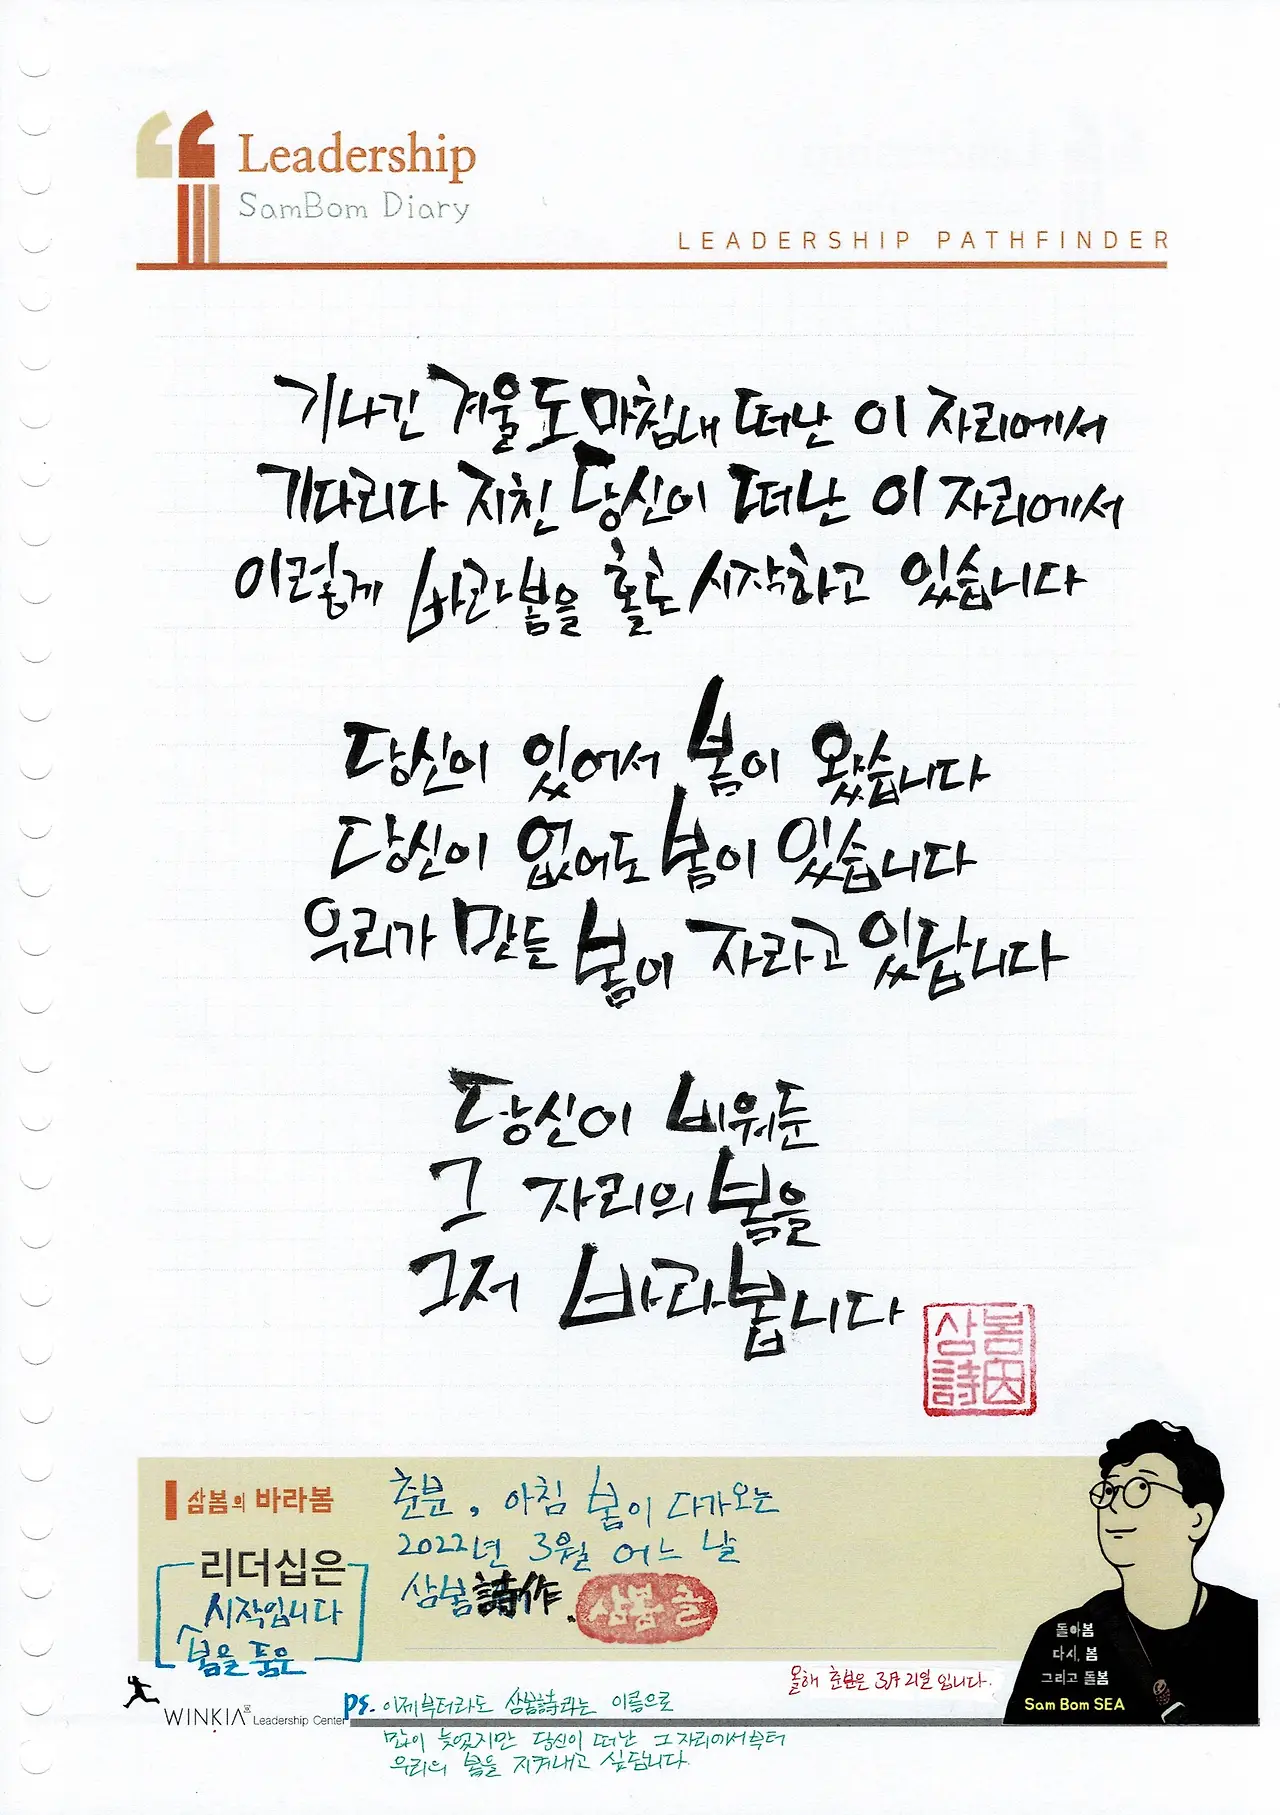 Leadership
SamBom Diary
LEADERSHIP PATHFINDER
기나긴 겨울도 마침내 떠난 이 자리에서
기다리다 지친 당신이 떠난 이 자리에서
이렇게 바라봄을 홀로 시작하고 있습니다
당신이 있어서 봄이 왔습니다
당신이 없어도 봄이 있습니다
우리가 만든 봄이 자라고 있답니다
당신이 비워둔
그 자리의 봄을
그저 바라봅니다
삼봄
詩因
삼봄의 바라봄
리더십은
시작입니다
봄을 품은
춘분, 아침 봄이 다가오는
2022년 3월 어느 날
삼봄詩作.
삼봄 글
돌아봄
다시, 봄
그리고 돌봄
Sam Bom SEA
올해 춘분은 3月 21일 입니다.
WINKIA Leadership Center
ps. 이제부터라도 삼봄詩라는 이름으로
많이 늦었지만 당신이 떠난 그 자리에서부터
우리의 봄을 지켜내고 싶답니다.